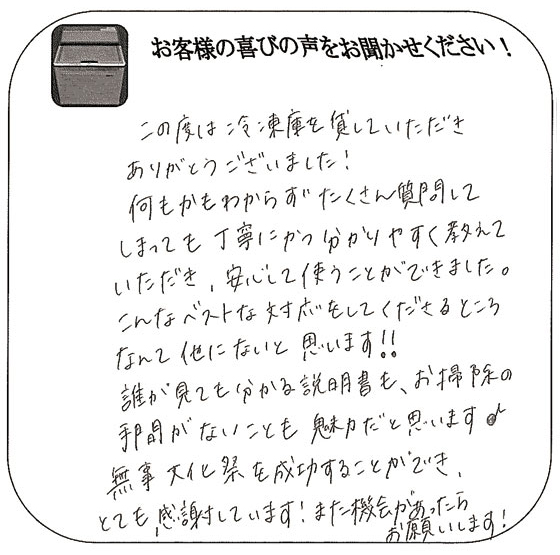 お客様の喜びの声をお聞かせください！
この度は冷凍庫を貸していただき
ありがとうございました！
何もかもわからず たくさん質問して
しまっても 丁寧にかつ分かりやすく教えて
いただき、安心して使うことができました。
こんなベストな対応をしてくださるところ
なんて他にないと思います!!
誰が見ても分かる説明書も、お掃除の
手間がないことも魅力だと思います♪
無事文化祭を成功することができ、
とても感謝しています！また機会があったら
お願いします！